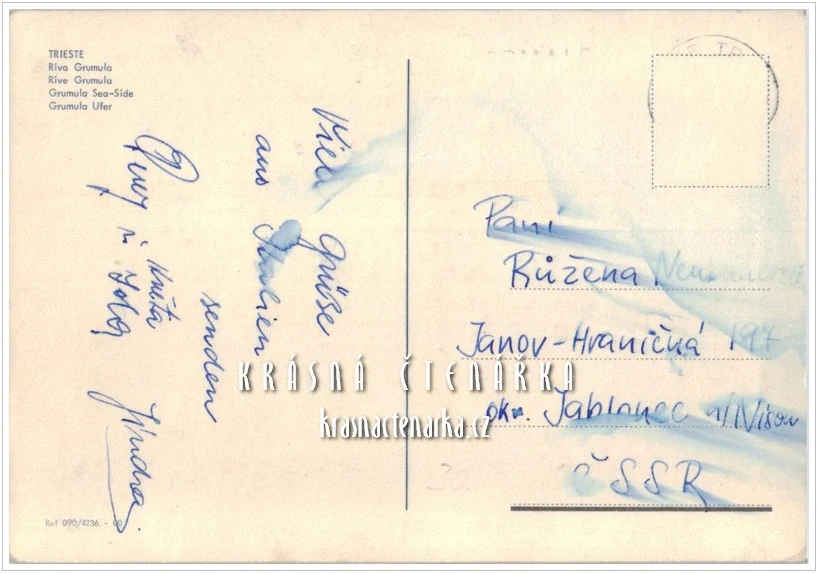 TRIESTE
Riva Grumula
Rive Grumula
Grumula Sea-Side
Grumula Ufer
Viele Grüße
aus Italien
senden
Jindra
Paní
Růžena
Janov-Hraničná 197
okr. Jablonec n/Nisou
ČSSR
30
KRÁSNÁ ČTENÁŘKA
krasnactenarka.cz
Ref 090/4236 - 00